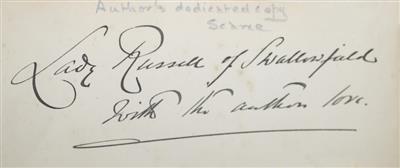 Author's dedicated copy
Scarce
Lady Russell of Swallowfield
with the authors love.